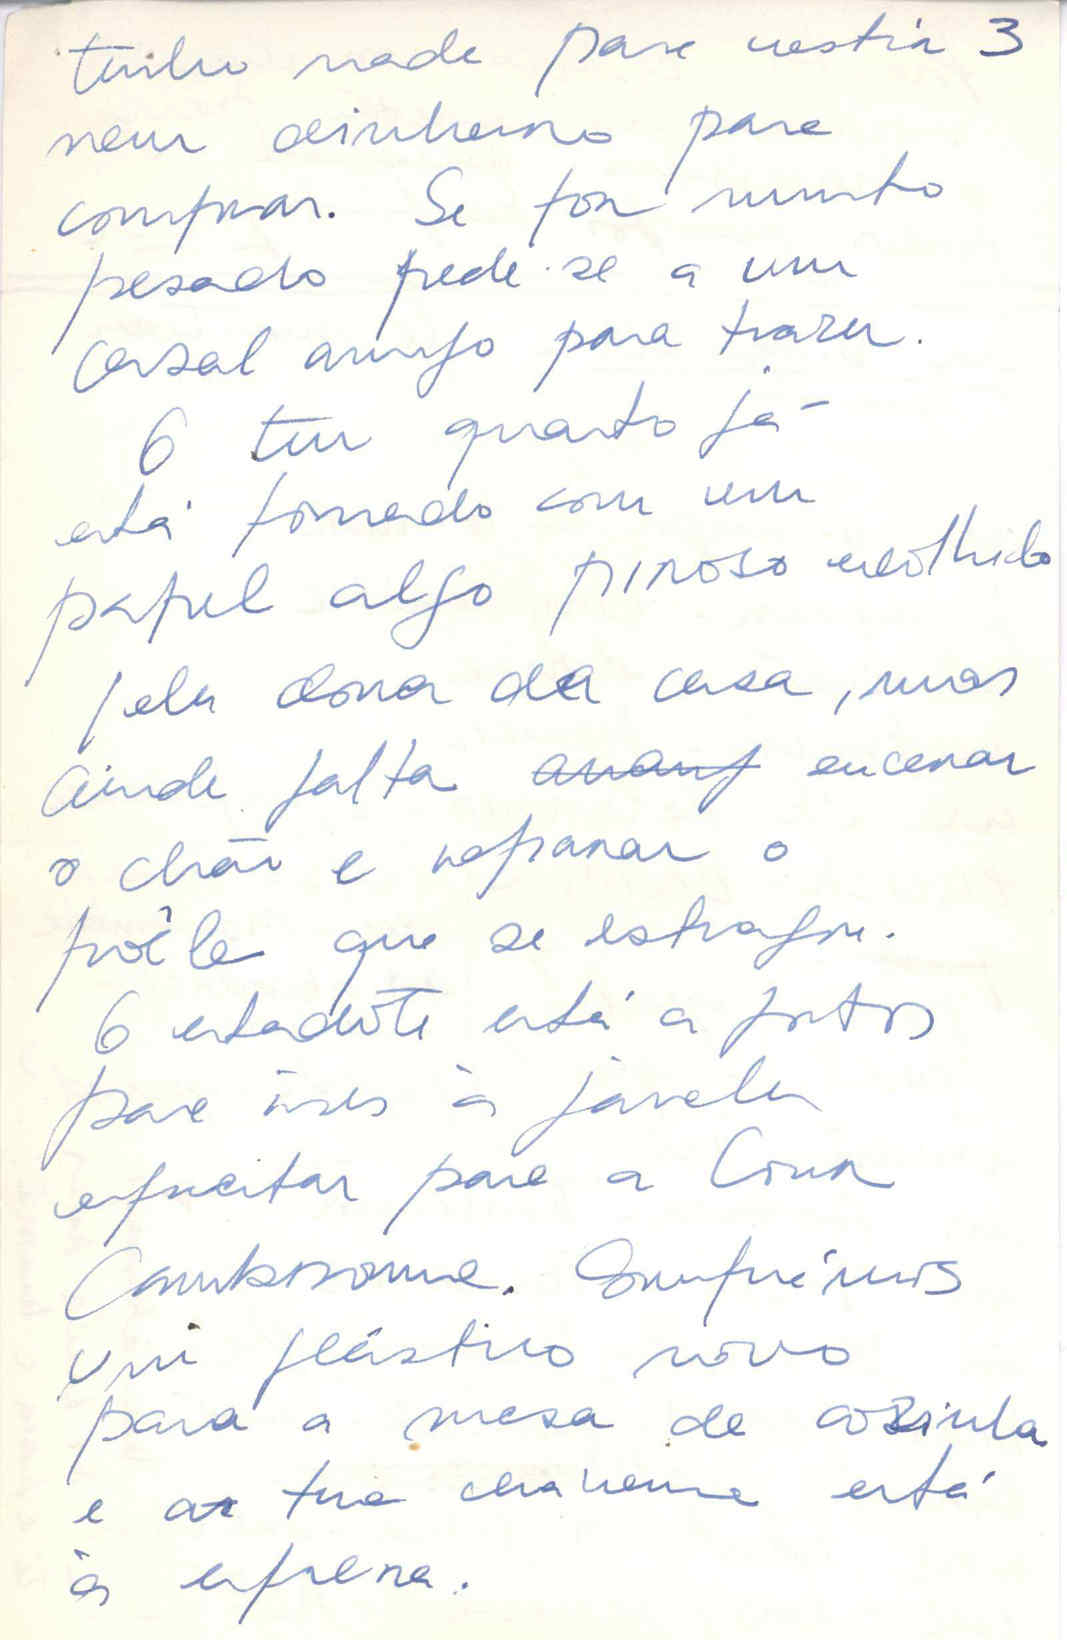 tenho nada para vestir 3
nem dinheiro para
comprar. Se for muito
pesado pede-se a um
casal amigo para trazer.
O teu quarto já
está forrado com um
papel algo piroso escolhido
pela dona da casa, mas
ainda falta encerar
o chão e reparar o
poêle que se estragou.
O escadote está a postos
para ires à janela
espreitar para a Cour
Comprámos
um plástico novo
para a mesa de cozinha
e a tua chavena está
à espera.